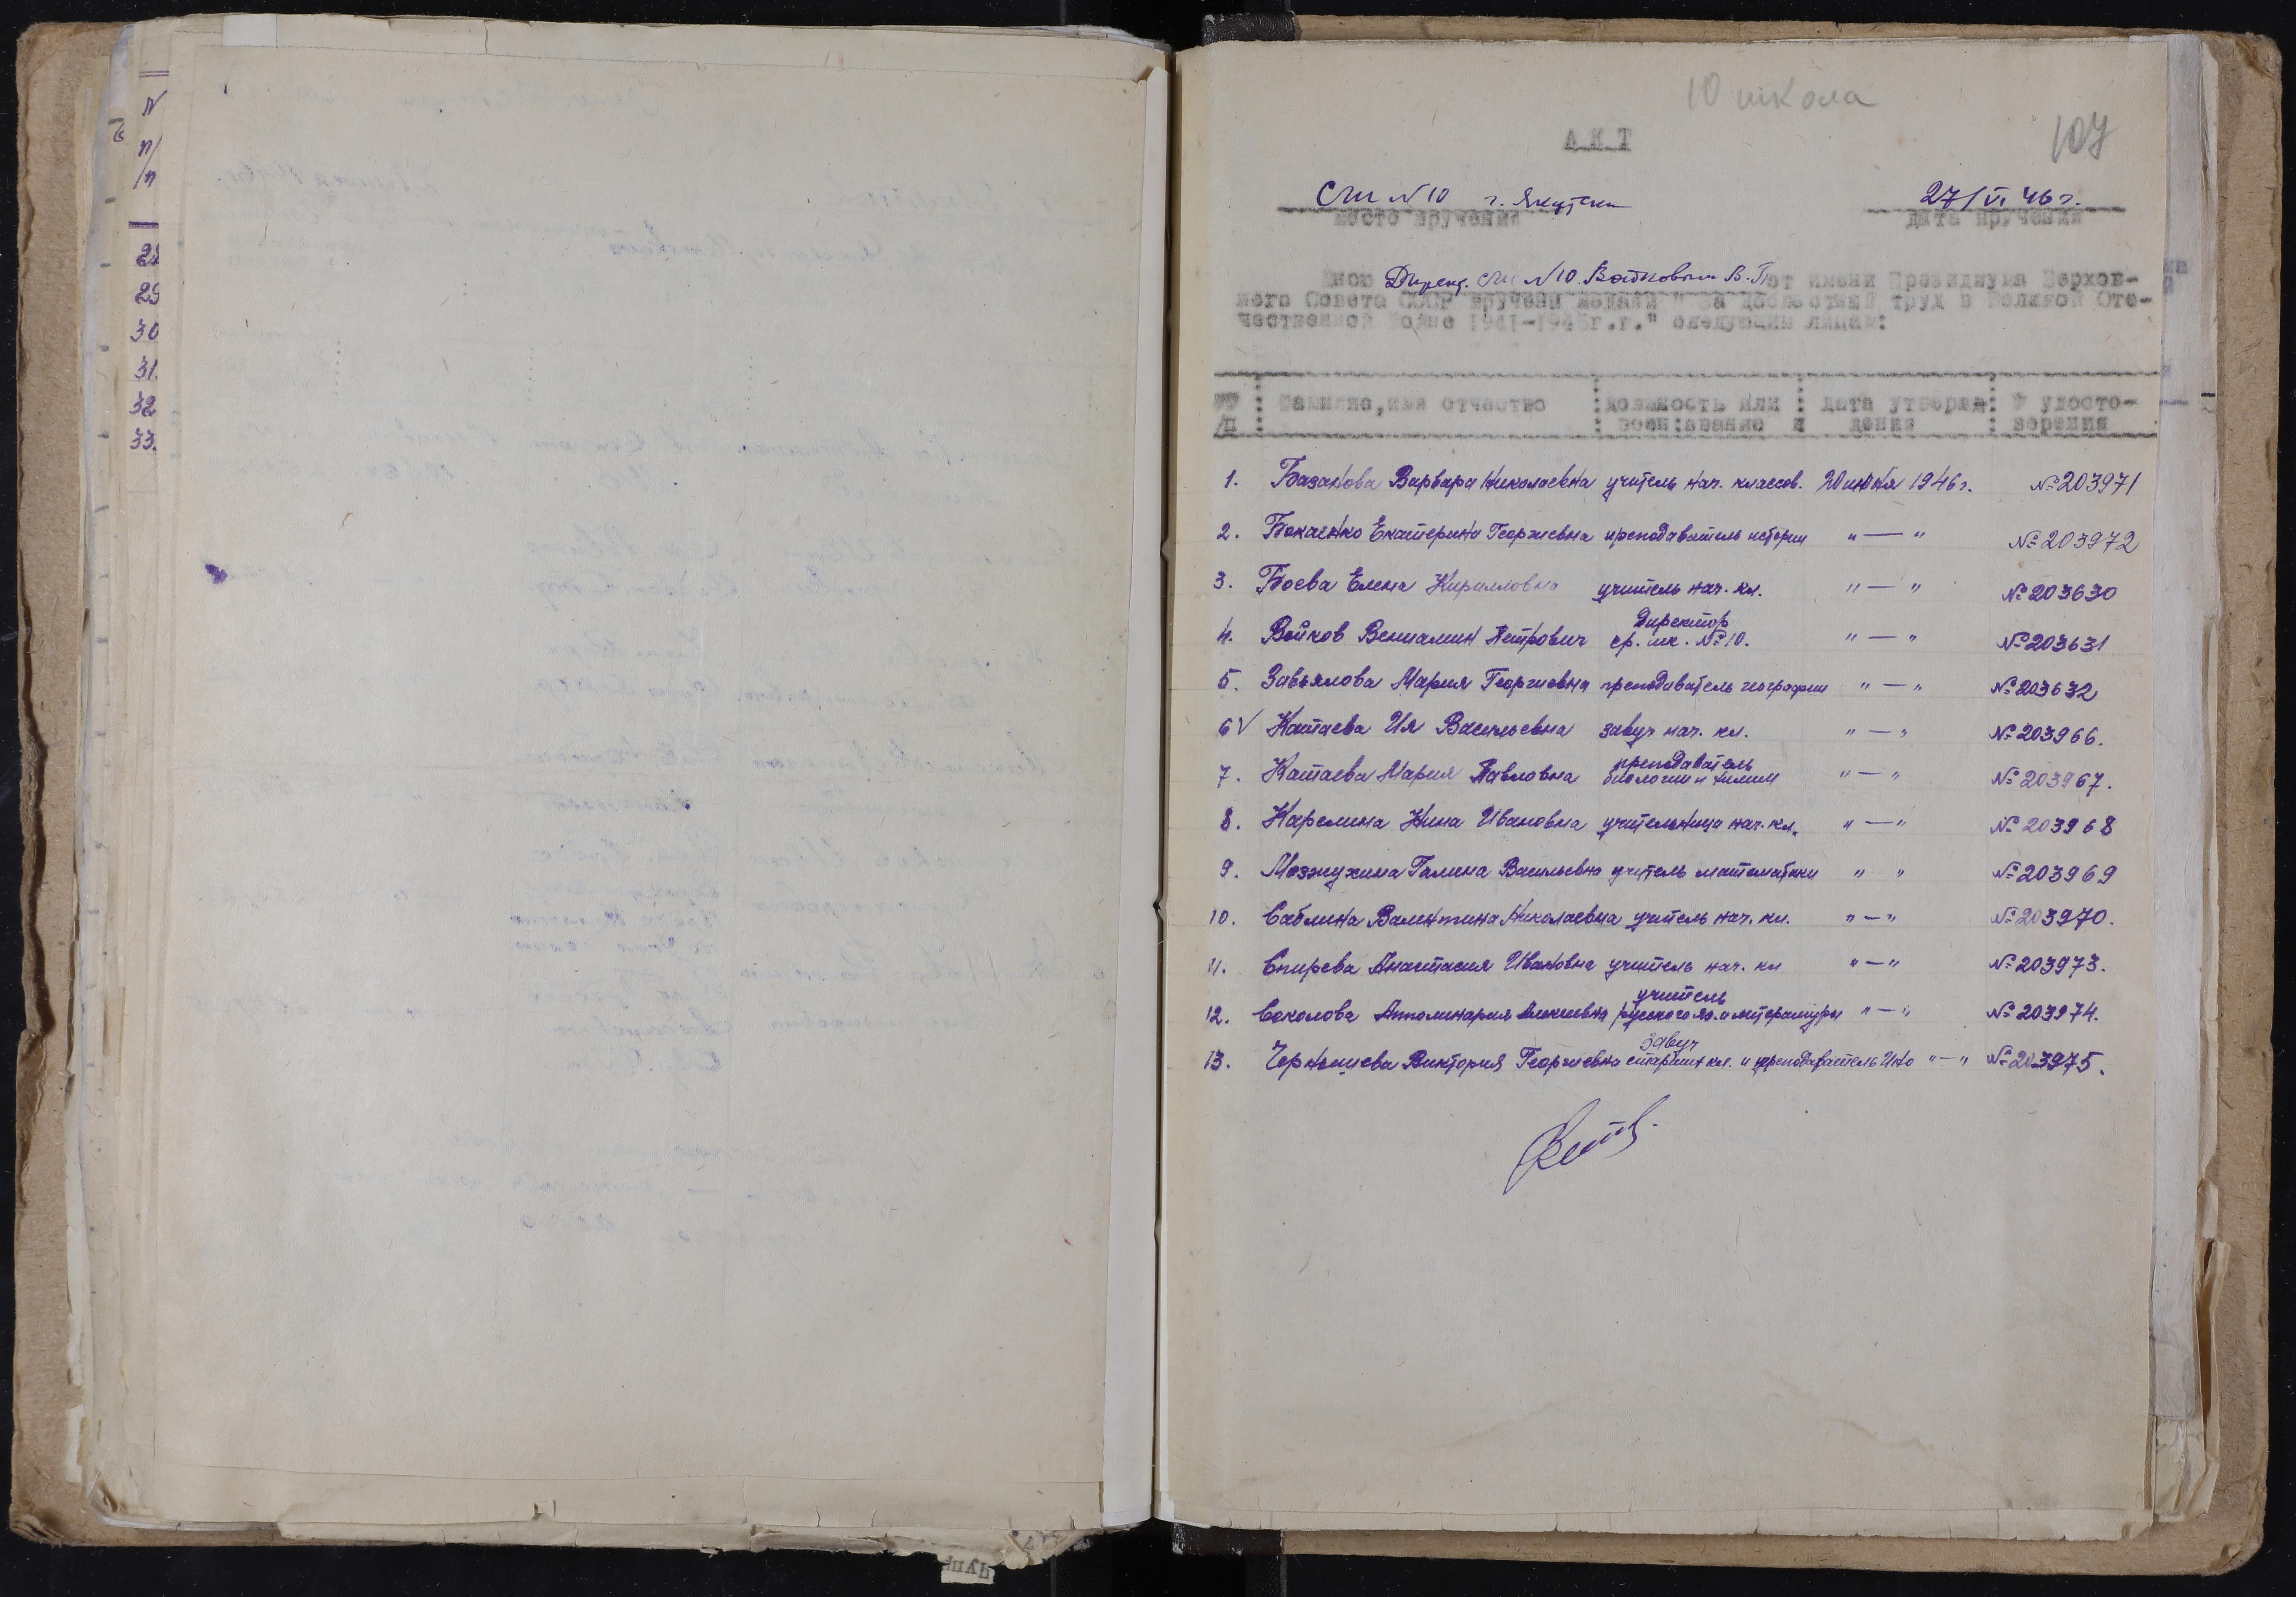 N
п/
/п
28
29
30
31.
32
33.
10 школа
107
АКТ
СШ N 10 г. Якутска
27/VI 46 г.
место вручения
дата вручения
Мною Директ. СШ N10 Войковым В.П. от имени Президиума Верхов-
ного Совета СССР вручены медали "За доблестный труд в Великой Оте-
чественной Войне 1941-1945г.г." следующим лицам:
№№ : Фамилие, имя отчество : должность или : дата утверж- : № удосто-
/п : : воен: звание : дения : верения
1. Базанова Варвара Николаевна учитель нач. классов. 20 июня 1946 г. № 203971
2. Бокаенко Екатерина Георгиевна преподаватель истории " — " № 203972
3. Боева Елена Кирилловна учитель нач. кл. " — " № 203630
директор
4. Войков Вениамин Петрович ср. шк. № 10. " — " № 203631
5. Завьялова Мария Георгиевна преподаватель географии " — " № 203632
6 V Катаева Ия Васильевна завуч нач. кл. " — " № 203966.
преподаватель
7. Катаева Мария Павловна биологии и химии " — " № 203967.
8. Карелина Нина Ивановна учительница нач. кл. " — " № 203968
9. Мозжухина Галина Васильевна учитель математики " " № 203969
10. Саблина Валентина Николаевна учитель нач. кл. " — " № 203970.
11. Спирева Анастасия Ивановна учитель нач. кл " — " № 203973.
учитель
12. Соколова Апполинария Алексеевна русского яз. и литературы " — " № 203974.
завуч
13. Чернышева Виктория Георгиевна старших кл. и преподаватель " — " № 203975.